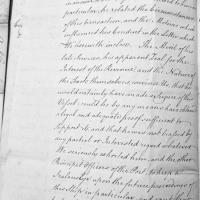 particular, he related the Circumstances
of this transaction, and the Motives which
influenced his Conduct in the Letter which
We herewith inclose. The Merit of his
late Services, his apparent Zeal for the
Interest of the Revenue, and the Nature of
the Facts themselves convince us that he
would certainly have made a Seizure of this
Vessel could he by any means have obtained
legal and adequate proof sufficient to
Support it and he was not biassed by
any partial or Interested regard whatever.
We seriously exhorted him, and the other
Principal Officers of the Port, to keep a
upon the future proceedings of
this Ship in particular, and